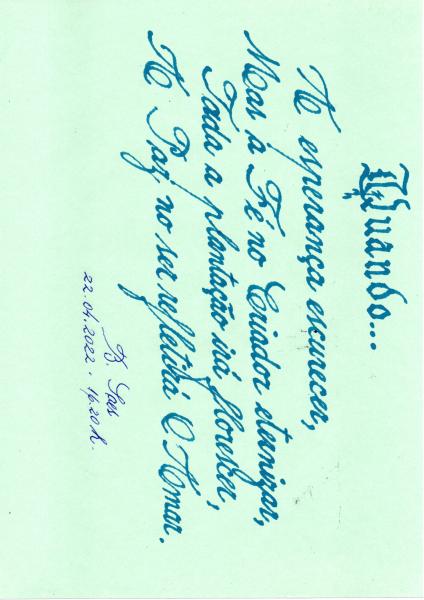 Quando...
A esperança escurecer,
Mas a Fé no Criador eternizar,
Toda a plantação irá florescer,
A Paz no ser refletirá O Amar.
B. Saes
22.04.2022. 16.20h.